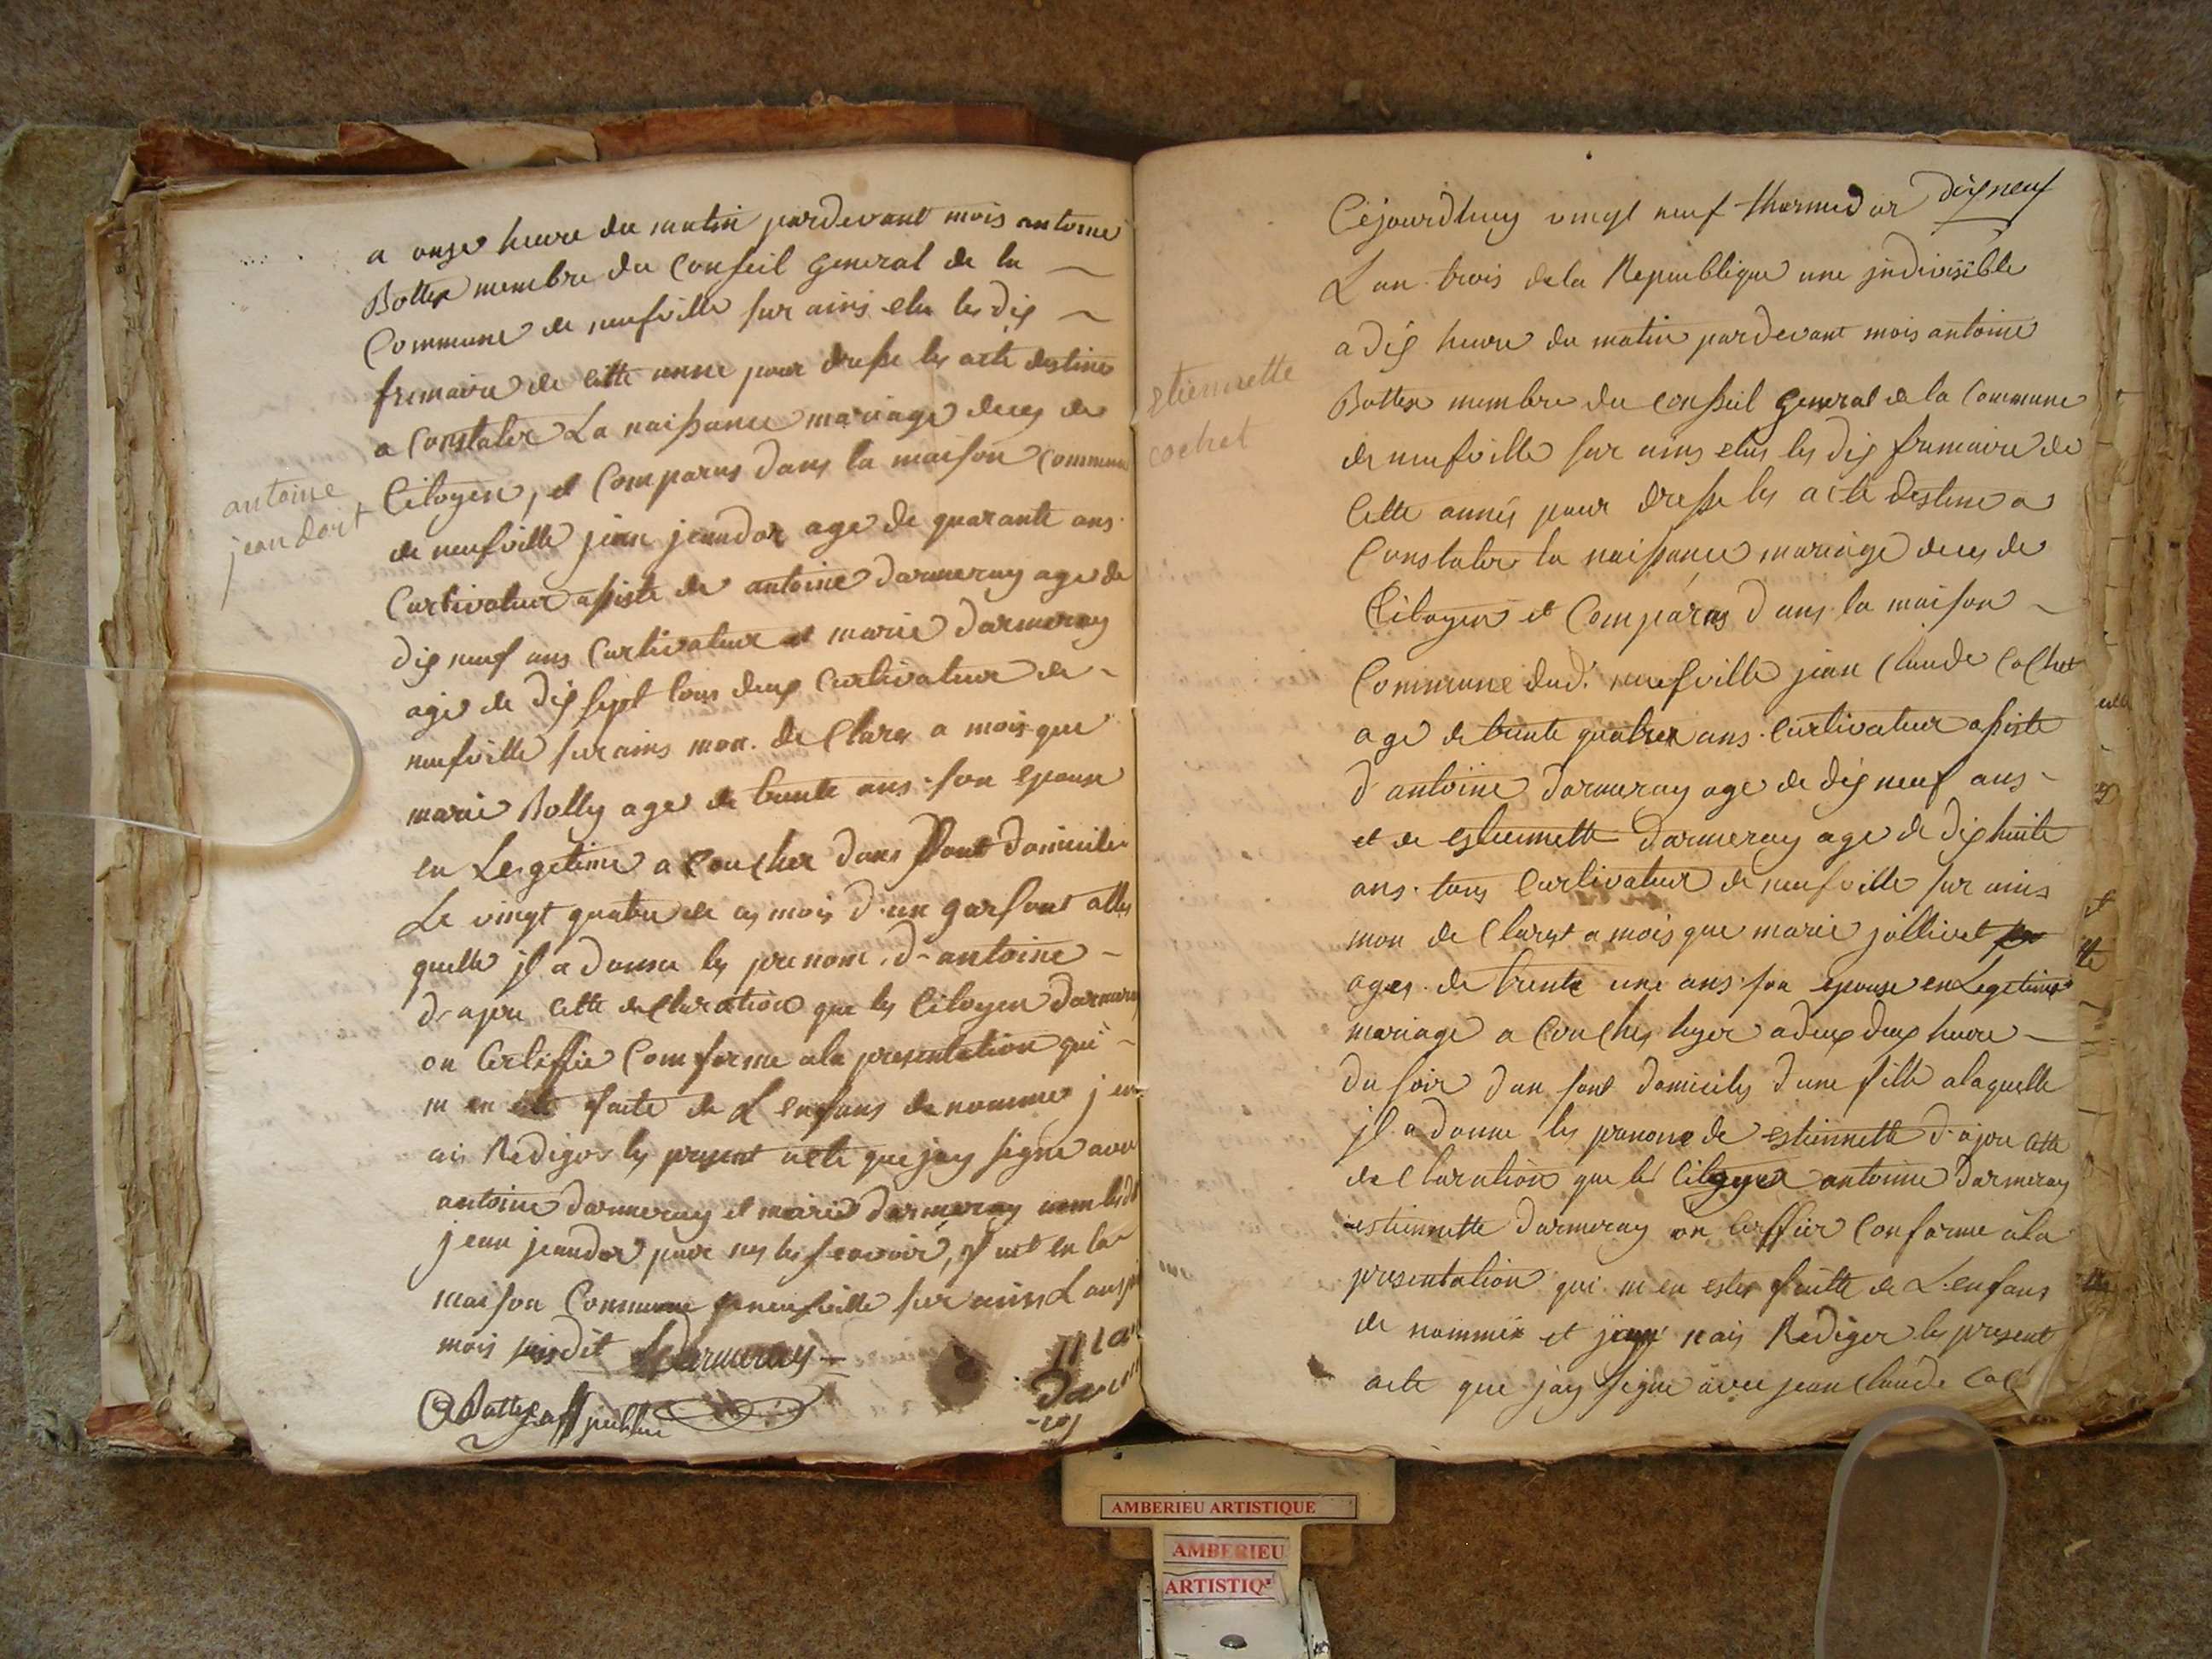 a onze heure du matin pardevant mois antoine
Bottex membre du Conseil general de la
Commune de neufville sur ains elu les dix
frimaire de cette anne pour dresse les acte destines
a Constater La naissance mariage deces de
Citoyen, et Comparus dans la maison Commune
antoine
jeandort
de neufville jean jeandor age de quarante ans
Curtivateur assiste de antoine darmeray age de
dix neuf ans Curtivateur et marie darmeray
age de dix sept tous deux Curtivateur de
neufville sur ains mon. de Clare a mois que
marie Bolly age de trente ans son epouse
en Legetime a Coucher dans sont domicile
Le vingt quatre de ces mois d'un garsont alles
quelle jl a donne les prenom d'antoine
d'apre cette declaration que les Citoyen darmeray
on Certiffie Comforme ala presentation qui
m en este faite de L enfans de nomme j en
ais Rediger les present acte que jay signe avec
antoine darmeray et marie darmeray
jean jeandor pour ne les scavoir, fait en la
maison Commune de neufville sur ains L ans
mois susdit Darmeray
ABottex off public
Cejourdhuy vingt neuf thermidor dix neuf
L an trois de la Republique une jndivisible
a dix heure du matin pardevant mois antoine
Bottex membre du conseil general de la Commune
de neufville sur ains elus les dix frimaire de
Cette annes pour dresse les acte destine a
Constater la naissance mariage deces de
Citoyen et Comparus dans la maison
etiennette
cochet
Commune dud. neufville jean Claude Cochet
age de trente quatre ans Curtivateur assiste
d'antoine darmeray age de dix neuf ans
et de estiennette darmeray age de dix huite
ans tous Curtivateur de neufville sur ains
mon de Claret a mois que marie jollivet
ages de trente une ans son epouse en Legetime
mariage a Couches hyer a deux deux heure
du soir dan sont domiciles d'une fille alaquelle
jl a donne les prenome de estiennette d'apre cette
declaration que les Citoyen antoine darmeray
estiennette darmeray on Certiffier Conforme ala
presentation qui m en estes faitte de L enfans
de nommer et nais Rediger les present
acte que jay signe avec jean Claude Coc